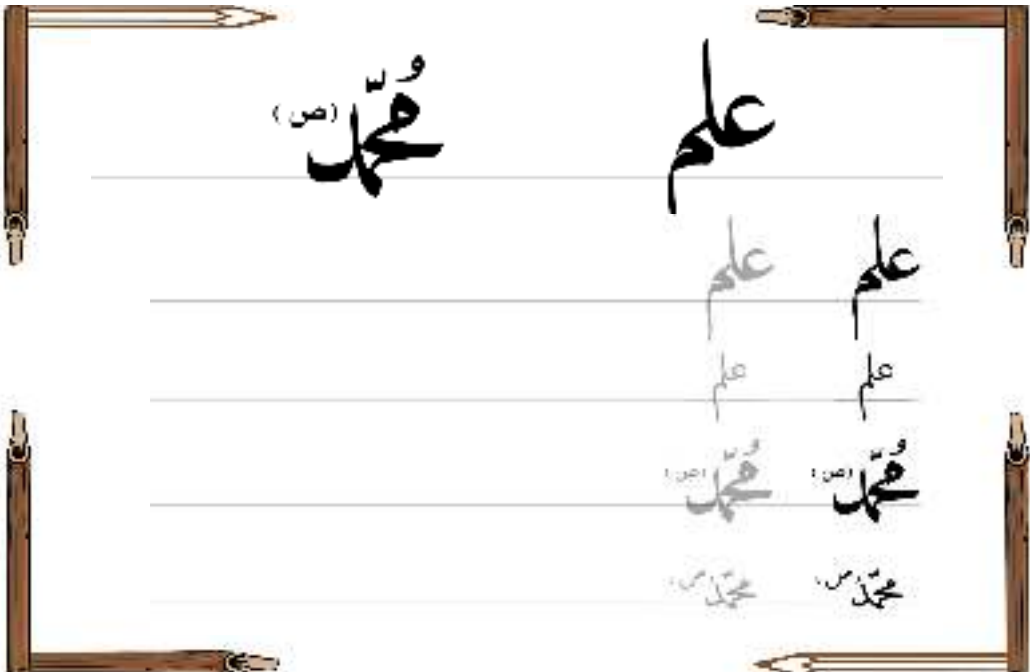 علم مُحمّد (ص)
علم علم
علم علم
مُحمّد (ص) مُحمّد (ص)
محمّد (ص) محمّد (ص)